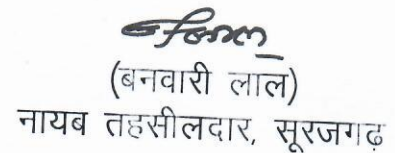 (बनवारी लाल)
नायब तहसीलदार, सूरजगढ़